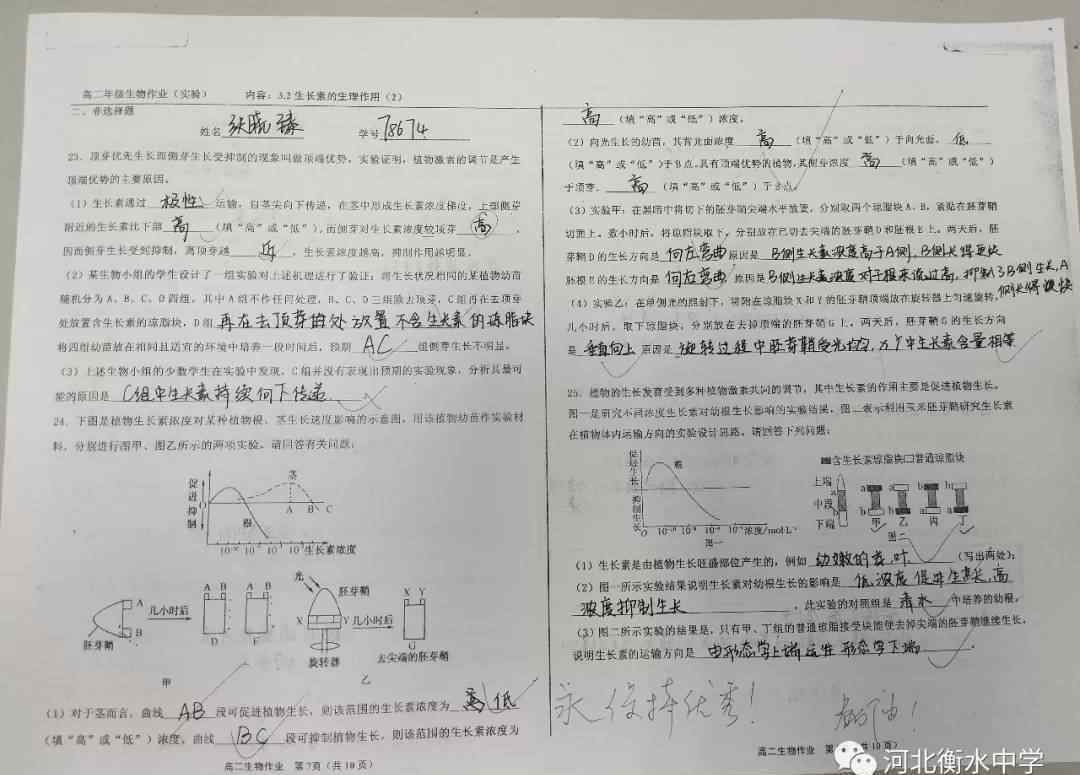 高二年级生物作业（实验） 内容：3.2生长素的生理作用（2）
二、非选择题
姓名 学号 78674
23．顶芽优先生长而侧芽生长受抑制的现象叫做顶端优势。实验证明，植物激素的调节是产生
顶端优势的主要原因。
（1）生长素通过 极性 运输，自茎尖向下传递，在茎中形成生长素浓度梯度，上部侧芽
附近的生长素比下部 高 （填“高”或“低”），而侧芽对生长素浓度较顶芽 高 ，
因而侧芽生长受到抑制，离顶芽越 近 ，生长素浓度越高，抑制作用越明显。
（2）某生物小组的学生设计了一组实验对上述机理进行了验证：将生长状况相同的某植物幼苗
随机分为A、B、C、D四组，其中A组不作任何处理，B、C、D三组除去顶芽，C组再在去顶芽
处放置含生长素的琼脂块，D组 再在去顶芽的处放置不含生长素的琼脂块
将四组幼苗放在相同且适宜的环境中培养一段时间后，预期 AC 组侧芽生长不明显。
（3）上述生物小组的少数学生在实验中发现，C组并没有表现出预期的实验现象，分析其最可
能的原因是 C组中生长素持续向下传递
24．下图是植物生长素浓度对某种植物根、茎生长速度影响的示意图，用该植物幼苗作实验材
料，分别进行图甲、图乙所示的两项实验。请回答有关问题：
促进
抑制
O 茎 根 A B C
生长素浓度
A B
胚芽鞘
几小时后
A B A B
D E
甲
光
胚芽鞘
X Y
旋转器
几小时后
X Y
G
去尖端的胚芽鞘
乙
（1）对于茎而言，曲线 AB 段可促进植物生长，则该范围的生长素浓度为 低
（填“高”或“低”）浓度，曲线 BC 段可抑制植物生长，则该范围的生长素浓度为
高二生物作业 第7页（共10页）
高 （填“高”或“低”）浓度。
（2）向光生长的幼苗，其背光面浓度 高 （填“高”或“低”）于向光面， 低
（填“高”或“低”）于B点。具有顶端优势的植物，其侧芽浓度 高 （填“高”或“低”）
于顶芽， 高 （填“高”或“低”）于B点。
（3）实验甲：在黑暗中将切下的胚芽鞘尖端水平放置，分别取两个琼脂块A、B，紧贴在胚芽鞘
切面上。数小时后，将琼脂块取下，分别放在已切去尖端的胚芽鞘D和胚根E上。两天后，胚
芽鞘D的生长方向是 向左弯曲 原因是 B侧生长素浓度高于A侧，B侧长得更快
胚根E的生长方向是 向左弯曲 原因是 B侧生长素浓度对于根来说过高，抑制了B侧生长，A
侧长得较快
（4）实验乙：在单侧光的照射下，将附在琼脂块X和Y的胚芽鞘顶端放在旋转器上匀速旋转，
几小时后，取下琼脂块，分别放在去掉顶端的胚芽鞘G上，两天后，胚芽鞘G的生长方向
是 垂直向上 原因是 旋转过程中胚芽鞘受光均匀，XY中生长素含量相等
25．植物的生长发育受到多种植物激素共同的调节，其中生长素的作用主要是促进植物生长。
图一是研究不同浓度生长素对幼根生长影响的实验结果，图二表示利用玉米胚芽鞘研究生长素
在植物体内运输方向的实验设计思路。请回答下列问题：
促进生长
抑制生长
O 根
浓度/mol·L⁻¹
图一
含生长素琼脂块 普通琼脂块
上端
中段
下端
a b
a a b b
b b a a
甲 乙 丙 丁
图二
（1）生长素是由植物生长旺盛部位产生的，例如 幼嫩的芽、叶 （写出两处）；
（2）图一所示实验结果说明生长素对幼根生长的影响是 低浓度促进生长，高
浓度抑制生长 ，此实验的对照组是 清水 中培养的幼根。
（3）图二所示实验的结果是，只有甲、丁组的普通琼脂接受块能使去掉尖端的胚芽鞘继续生长，
说明生长素的运输方向是 由形态学上端运往形态学下端 。
永保持优秀！
加油！
高二生物作业 第 （共10页）
河北衡水中学